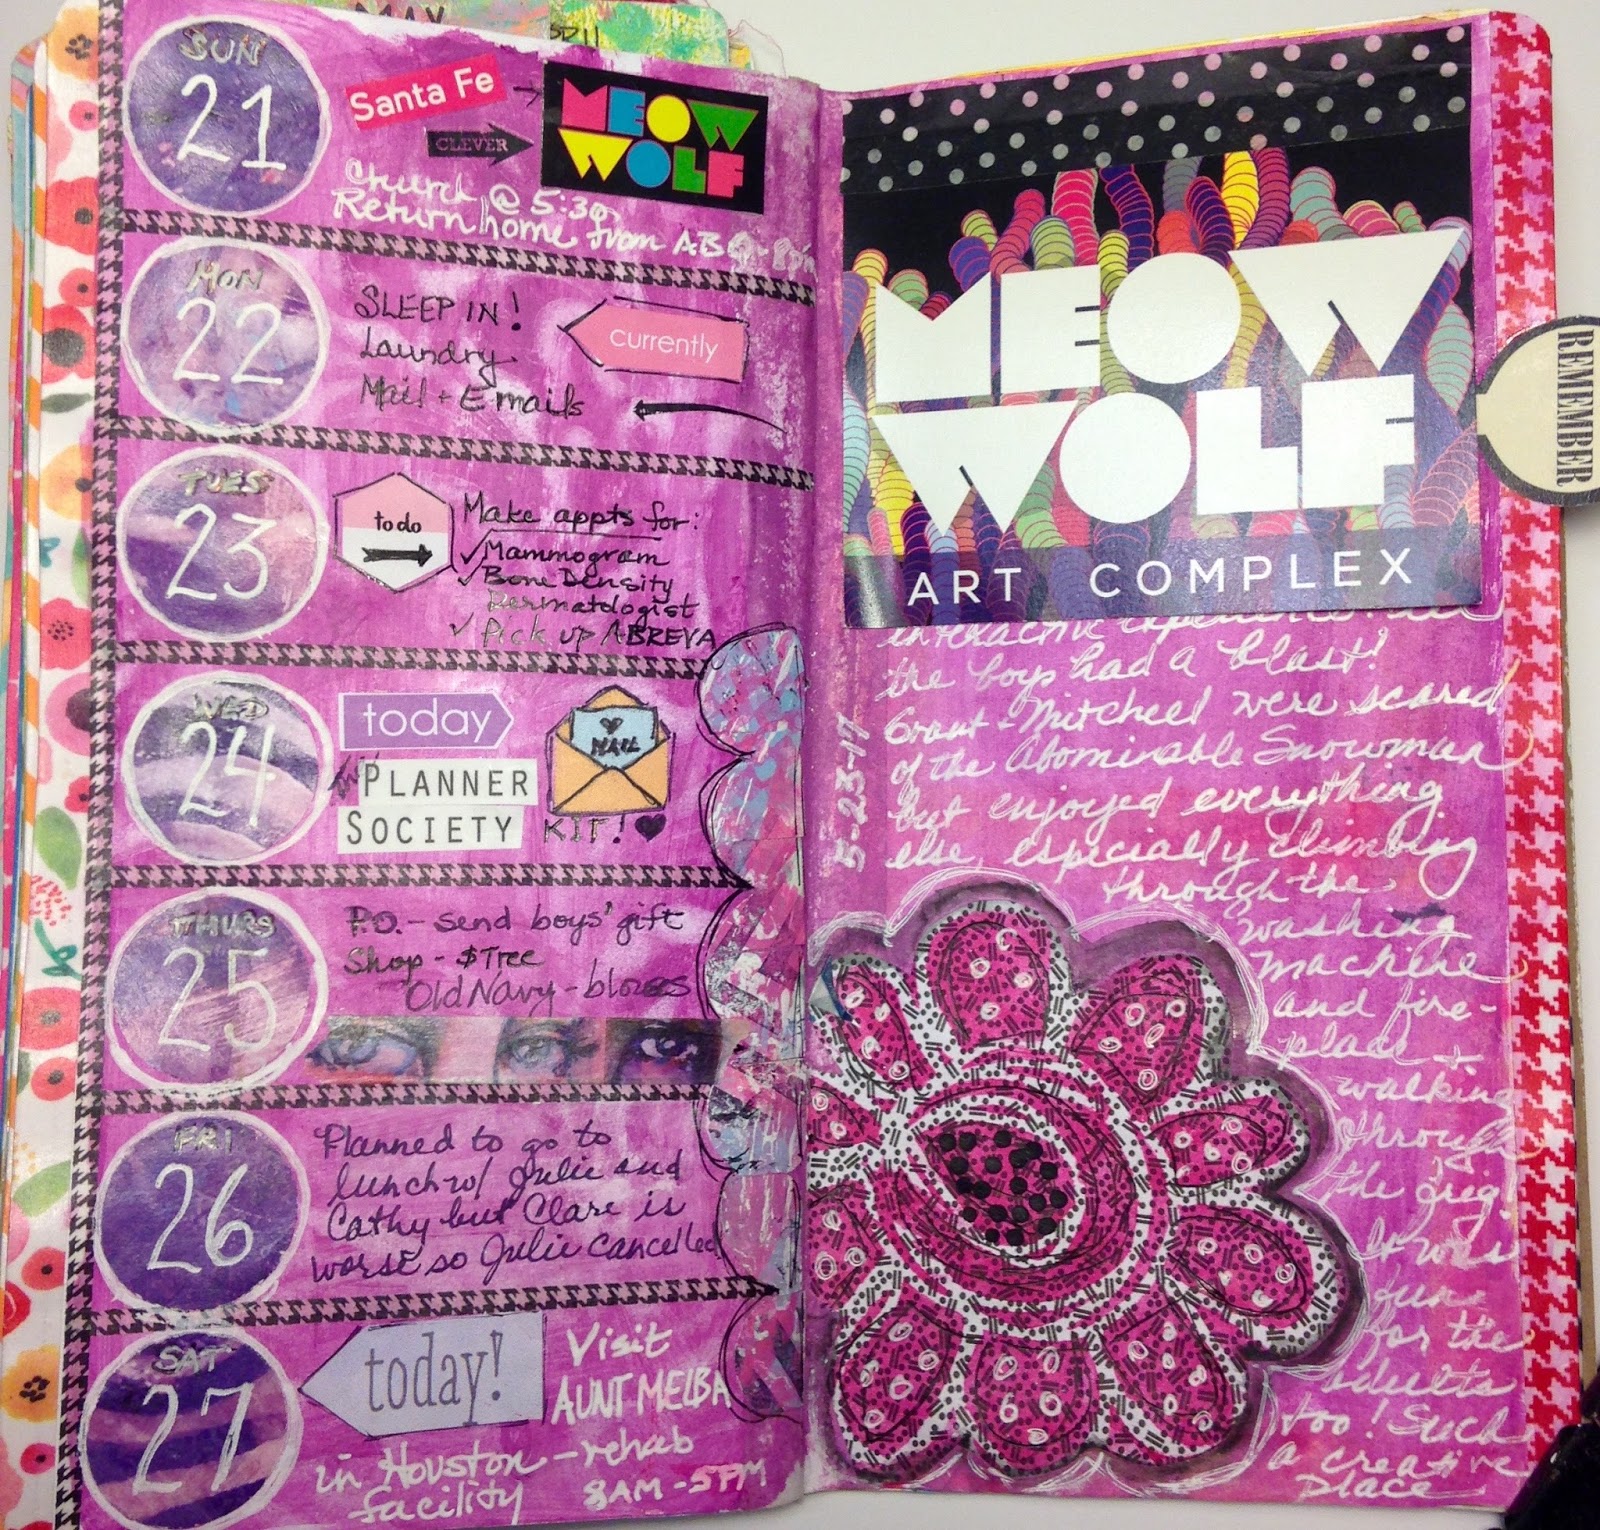 MAY
SUN
21
Santa Fe
CLEVER
MEOW
WOLF
Church @ 5:30
Return home from ABQ - 8pm
MON
22
SLEEP IN!
Laundry
Mail + Emails
currently
TUES
23
to do
Make appts for:
✓ Mammogram
✓ Bone Density
Dermatologist
✓ Pick up ABREVA
WED
24
today
PLANNER
SOCIETY
MAIL
KIT! ♥
THURS
25
P.O. - send boys' gift
Shop - $Tree
Old Navy -
FRI
26
Planned to go to
lunch w/ Julie and
Cathy but Clare is
worse so Julie cancelled
SAT
27
today!
Visit
AUNT MELBA
in Houston - rehab
facility
8AM - 5PM
MEOW
WOLF
ART COMPLEX
REMEMBER
5-23-17
interactive experience
the boys had a blast!
Grant + Mitchell were scared
of the Abominable Snowman
but enjoyed everything
else, especially climbing
through the
washing
machine
and fire-
place +
walking
through
the frig!
It was
fun
for the
adults
too! Such
a creative
place